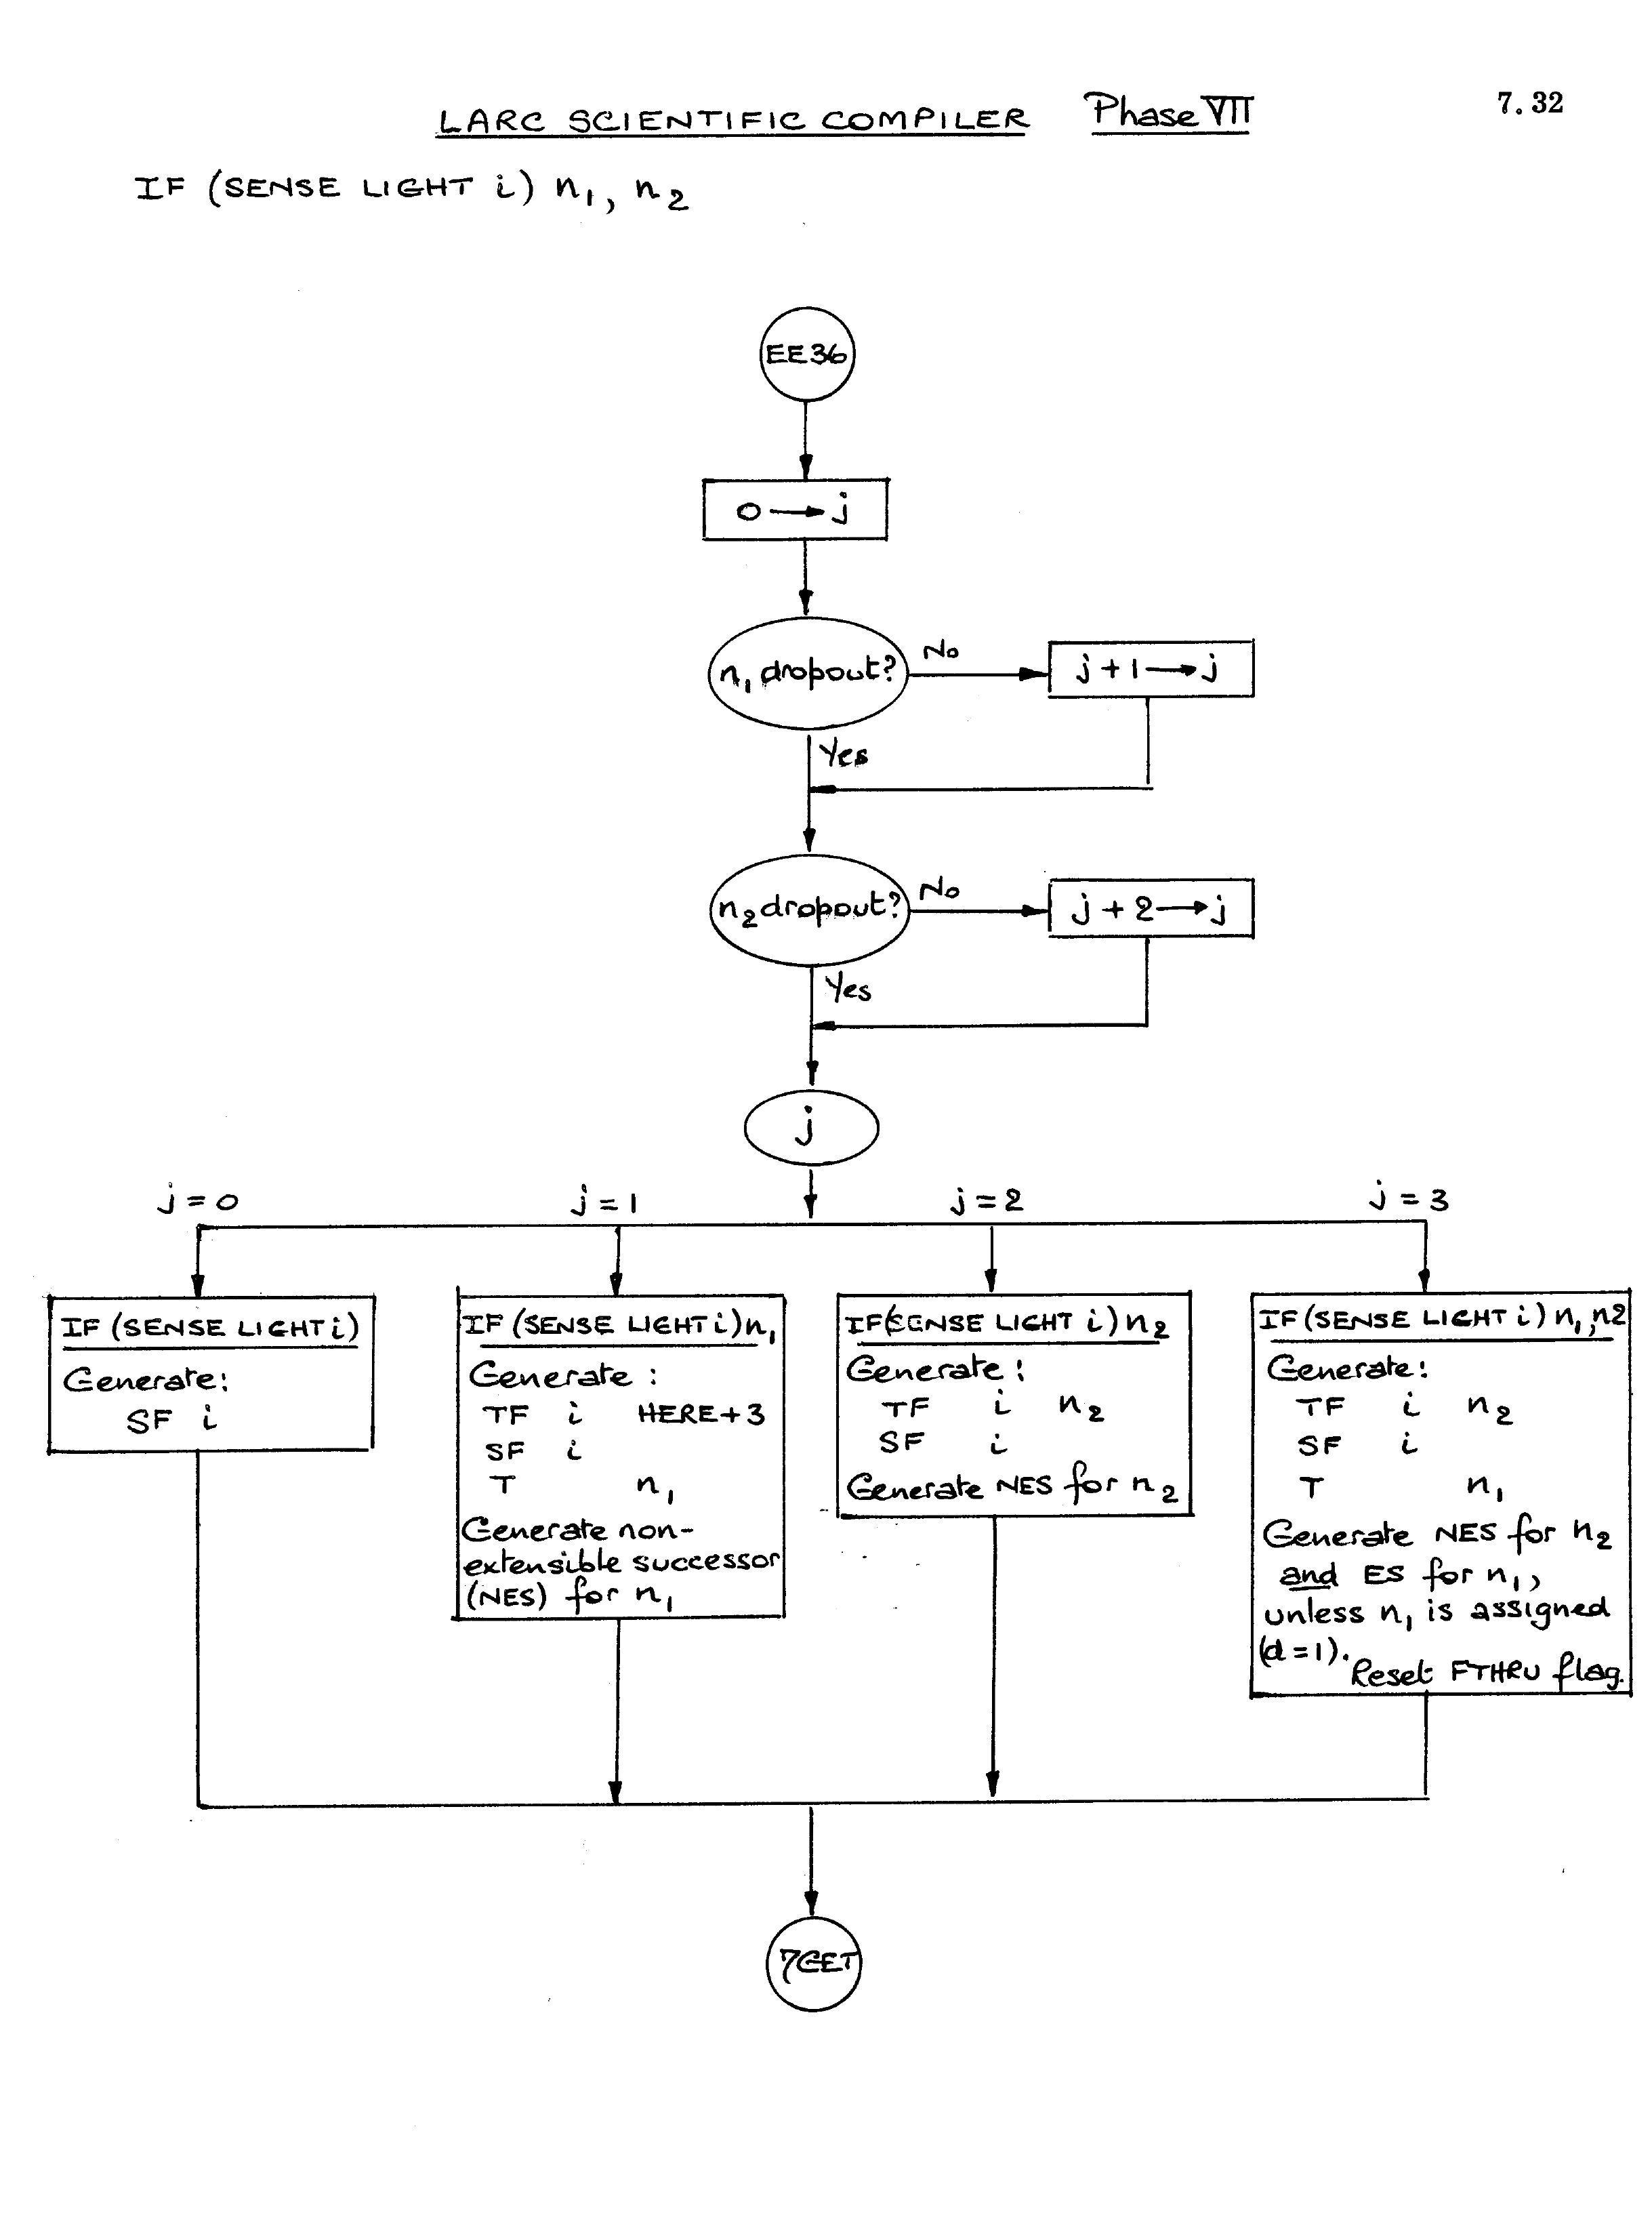 LARC SCIENTIFIC COMPILER Phase VII 7.32
IF (SENSE LIGHT i) n1, n2
EE36
0 → j
n1 dropout?
No
j + 1 → j
Yes
n2 dropout?
No
j + 2 → j
Yes
j
j = 0
j = 1
j = 2
j = 3
IF (SENSE LIGHT i)
Generate:
SF i
IF (SENSE LIGHT i) n1
Generate :
TF i HERE+3
SF i
T n1
Generate non-
extensible successor
(NES) for n1
IF (SENSE LIGHT i) n2
Generate :
TF i n2
SF i
Generate NES for n2
IF (SENSE LIGHT i) n1, n2
Generate:
TF i n2
SF i
T n1
Generate NES for n2
and ES for n1,
unless n1 is assigned
(d = 1).
Reset FTHRU flag.
7GET